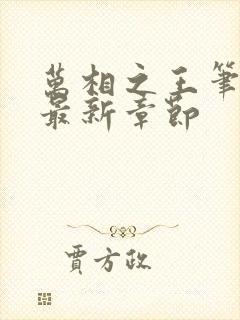 萬相之王筆
最新章節
賈方政